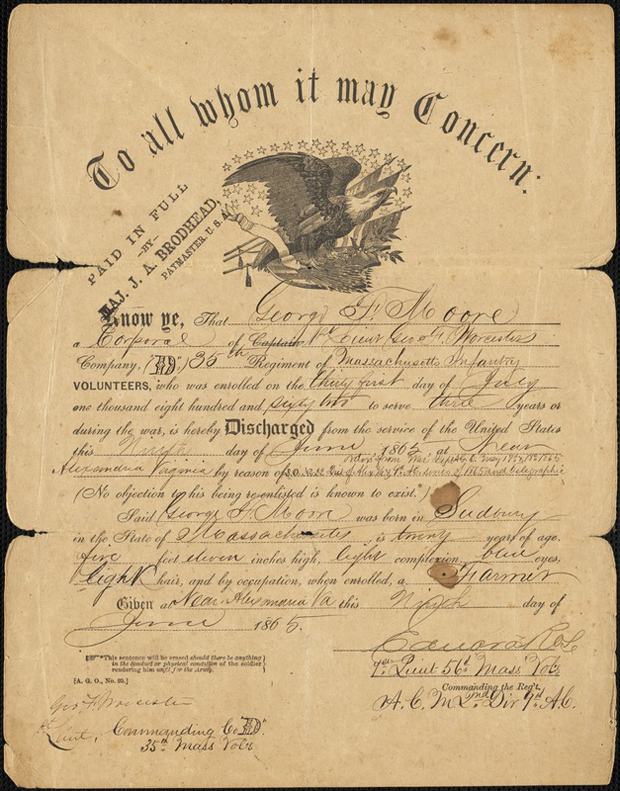 To all whom it may Concern:
PAID IN FULL
—BY—
MAJ. J. A. BRODHEAD,
PAYMASTER, U. S. A.
Know ye, That George F. Moore
a Corporal of Captain 1st Lieut Geo F. Worcester
Company, ("D",) 35th Regiment of Massachusetts Infantry
VOLUNTEERS, who was enrolled on the thirty first day of July
one thousand eight hundred and sixty two to serve three years or
during the war, is hereby Discharged from the service of the United States
this Ninth day of June 1865 at Near
Alexandria Virginia by reason of
(No objection to his being re-enlisted is known to exist.*)
Said George F. Moore was born in Sudbury
in the State of Massachusetts is twenty years of age,
five feet eleven inches high, light complexion, blue eyes,
light hair, and by occupation, when enrolled, a Farmer
Given at Near Alexandria Va this Ninth day of
June 1865.
*This sentence will be erased should there be anything
in the conduct or physical condition of the soldier
rendering him unfit for the Army.
[A. G. O., No. 99.]
1st Lieut 56th Mass Vols
Commanding the Reg't.
A. C. M. 2nd Div 9th A.C.
Geo. F. Worcester
1st Lieut, Commanding Co "D".
35th Mass Vols